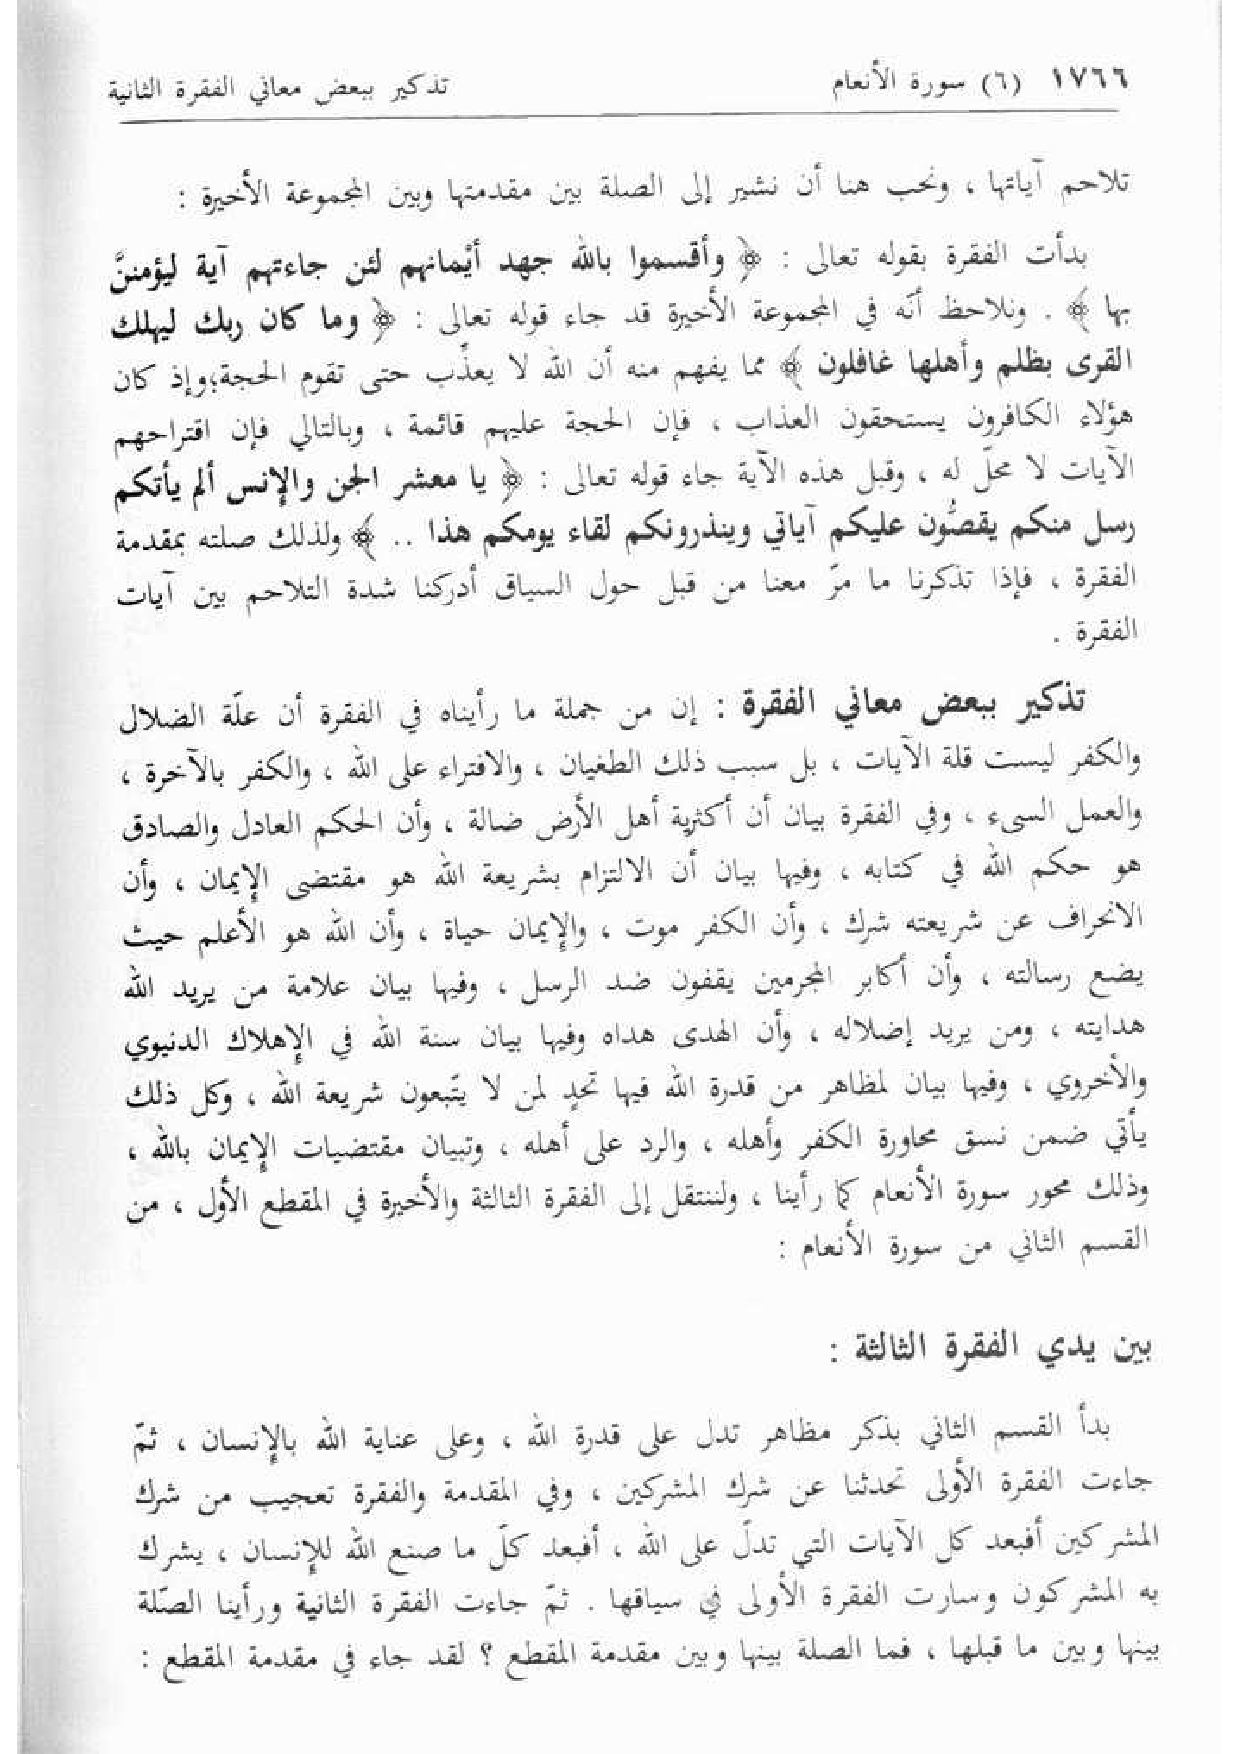 ١٧٦٦ (٦) سورة الأنعام تذكير ببعض معاني الفقرة الثانية
تلاحم آياتها ، ونحب هنا أن نشير إلى الصلة بين مقدمتها وبين المجموعة الأخيرة :
بدأت الفقرة بقوله تعالى : ﴿ وأقسموا بالله جهد أيْمانهم لئن جاءتهم آية ليؤمننَّ
بها ﴾ . ونلاحظ أنّه في المجموعة الأخيرة قد جاء قوله تعالى : ﴿ وما كان ربك ليهلك
القرى بظلم وأهلها غافلون ﴾ مما يفهم منه أن الله لا يعذِّب حتى تقوم الحجة؛وإذ كان
هؤلاء الكافرون يستحقون العذاب ، فإن الحجة عليهم قائمة ، وبالتالي فإن اقتراحهم
الآيات لا محلّ له ، وقبل هذه الآية جاء قوله تعالى : ﴿ يا معشر الجن والإنس ألم يأتكم
رسل منكم يقصُّون عليكم آياتي وينذرونكم لقاء يومكم هذا .. ﴾ ولذلك صلته بمقدمة
الفقرة ، فإذا تذكرنا ما مرّ معنا من قبل حول السياق أدركنا شدة التلاحم بين آيات
الفقرة .
تذكير ببعض معاني الفقرة : إن من جملة ما رأيناه في الفقرة أن علّة الضلال
والكفر ليست قلة الآيات ، بل سبب ذلك الطغيان ، والافتراء على الله ، والكفر بالآخرة ،
والعمل السىء ، وفي الفقرة بيان أن أكثرية أهل الأرض ضالة ، وأن الحكم العادل والصادق
هو حكم الله في كتابه ، وفيها بيان أن الالتزام بشريعة الله هو مقتضى الإيمان ، وأن
الانحراف عن شريعته شرك ، وأن الكفر موت ، والإيمان حياة ، وأن الله هو الأعلم حيث
يضع رسالته ، وأن أكابر المجرمين يقفون ضد الرسل ، وفيها بيان علامة من يريد الله
هدايته ، ومن يريد إضلاله ، وأن الهدى هداه وفيها بيان سنة الله في الإهلاك الدنيوي
والأخروي ، وفيها بيان لمظاهر من قدرة الله فيها تحدٍ لمن لا يتّبعون شريعة الله ، وكل ذلك
يأتي ضمن نسق محاورة الكفر وأهله ، والرد على أهله ، وتبيان مقتضيات الإيمان بالله ،
وذلك محور سورة الأنعام كما رأينا ، ولننتقل إلى الفقرة الثالثة والأخيرة في المقطع الأول ، من
القسم الثاني من سورة الأنعام :
بين يدي الفقرة الثالثة :
بدأ القسم الثاني بذكر مظاهر تدل على قدرة الله ، وعلى عناية الله بالإنسان ، ثمّ
جاءت الفقرة الأولى تحدثنا عن شرك المشركين ، وفي المقدمة والفقرة تعجيب من شرك
المشركين أفبعد كل الآيات التي تدلّ على الله ، أفبعد كلّ ما صنع الله للإنسان ، يشرك
به المشركون وسارت الفقرة الأولى في سياقها . ثمّ جاءت الفقرة الثانية ورأينا الصّلة
بينها وبين ما قبلها ، فما الصلة بينها وبين مقدمة المقطع ؟ لقد جاء في مقدمة المقطع :